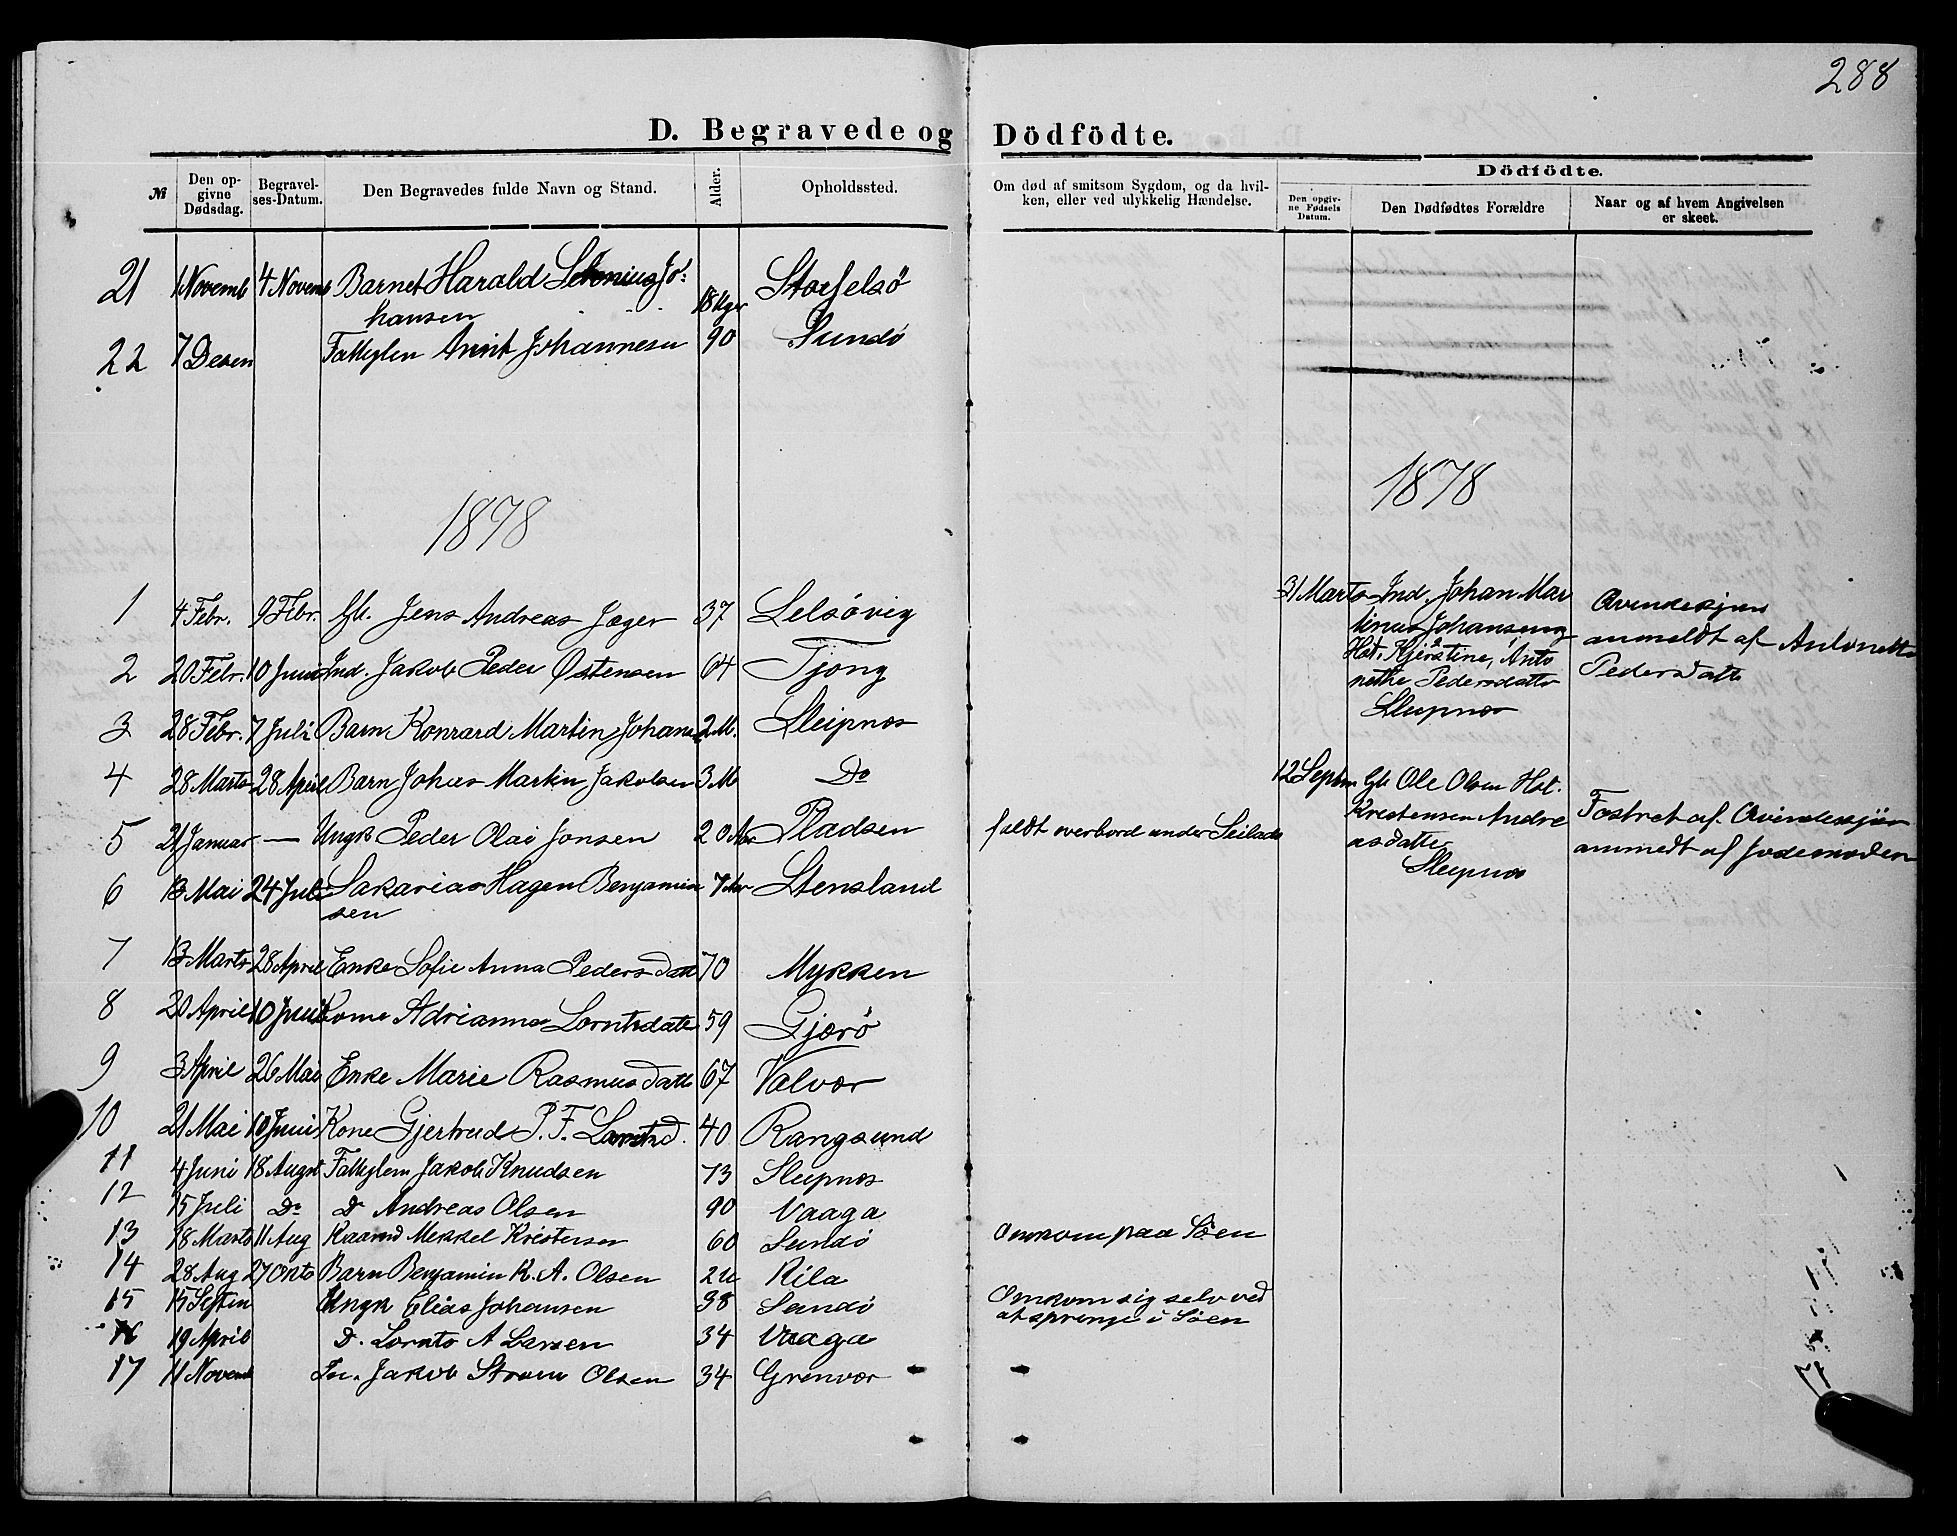 288
D. Begravede og Dödfödte.
№ Den opgivne Dødsdag. Begravelses-Datum. Den Begravedes fulde Navn og Stand. Alder. Opholdssted. Om død af smitsom Sygdom, og da hvilken, eller ved ulykkelig Hændelse. Dödfödte. Den opgivne Fødsels Datum. Den Dødfødtes Forældre Naar og af hvem Angivelsen er skeet.
21 1 Novemb 4 Novemb Barnet Harald Jo:
hansen 18 Storselsö
22 7 Desem Fattiglem Johannesen 90 Sundö
1878
1878
1 4 Febr. 9 Febr. Gb. Jens Andreas Jæger 37 Selsövig
2 20 Febr. 10 Juni Ind. Jakob Peder Østensen 64 Tjong
3 28 Febr. 7 Juli Barn Konrard Martin Johans 2 M. Sleipnes
4 28 Marts 28 April Barn Johas Martin Jakobsen 3 M Do
5 21 Januar — Ungk Peder Olai Jonsen 20 Aar Pladsen faldt overbord under Seilads
6 13 Mai 24 Juli Sakarias Hagen Benjamin
sen 7 Aar Stensland
7 13 Marts 28 April Enke Sofie Anna Pedersdatt 70 Mykken
8 20 April 10 Juni Kone Adrianna Lorntsdatt 59 Gjerö
9 3 April 26 Mai Enke Marie Rasmusdatt 67 Valvær
10 21 Mai 10 Juni Kone Gjertrud P. F. Lorntsd. 40 Rangsund
11 4 Juni 18 Augst Fattiglem Jakob Knudsen 73 Sleipnes
12 15 Juli Do D. Andreas Olsen 90 Vaaga
13 18 Marts 11 Aug Kaarmd Mekkel Kristensen 60 Sundö Omkom paa Söen
14 28 Aug 27 Okto Barn Benjamin K. A. Olsen Kila
15 15 Septem Ungk Elias Johansen 38 Sandö Omkom sig selv ved
at springe i Söen
16 19 April D. Lornts A Larsen 34 Vaaga
17 11 Novemb Jakob Strøm Olsen 34 Grønvær
31 Marts Ind. Johan Mar
tinus Johansen og
Hst. Kjerstine, Anto
nethe Pedersdatter
Sleipnes
Qvindesjen
anmeldt af Antonette
Pedersdatt
12 Septem Gb Ole Olsen Hst.
Kristensen Andre
asdatter
Sleipnes
Fostret af Qvindesjön
anmedt af Jodemoden